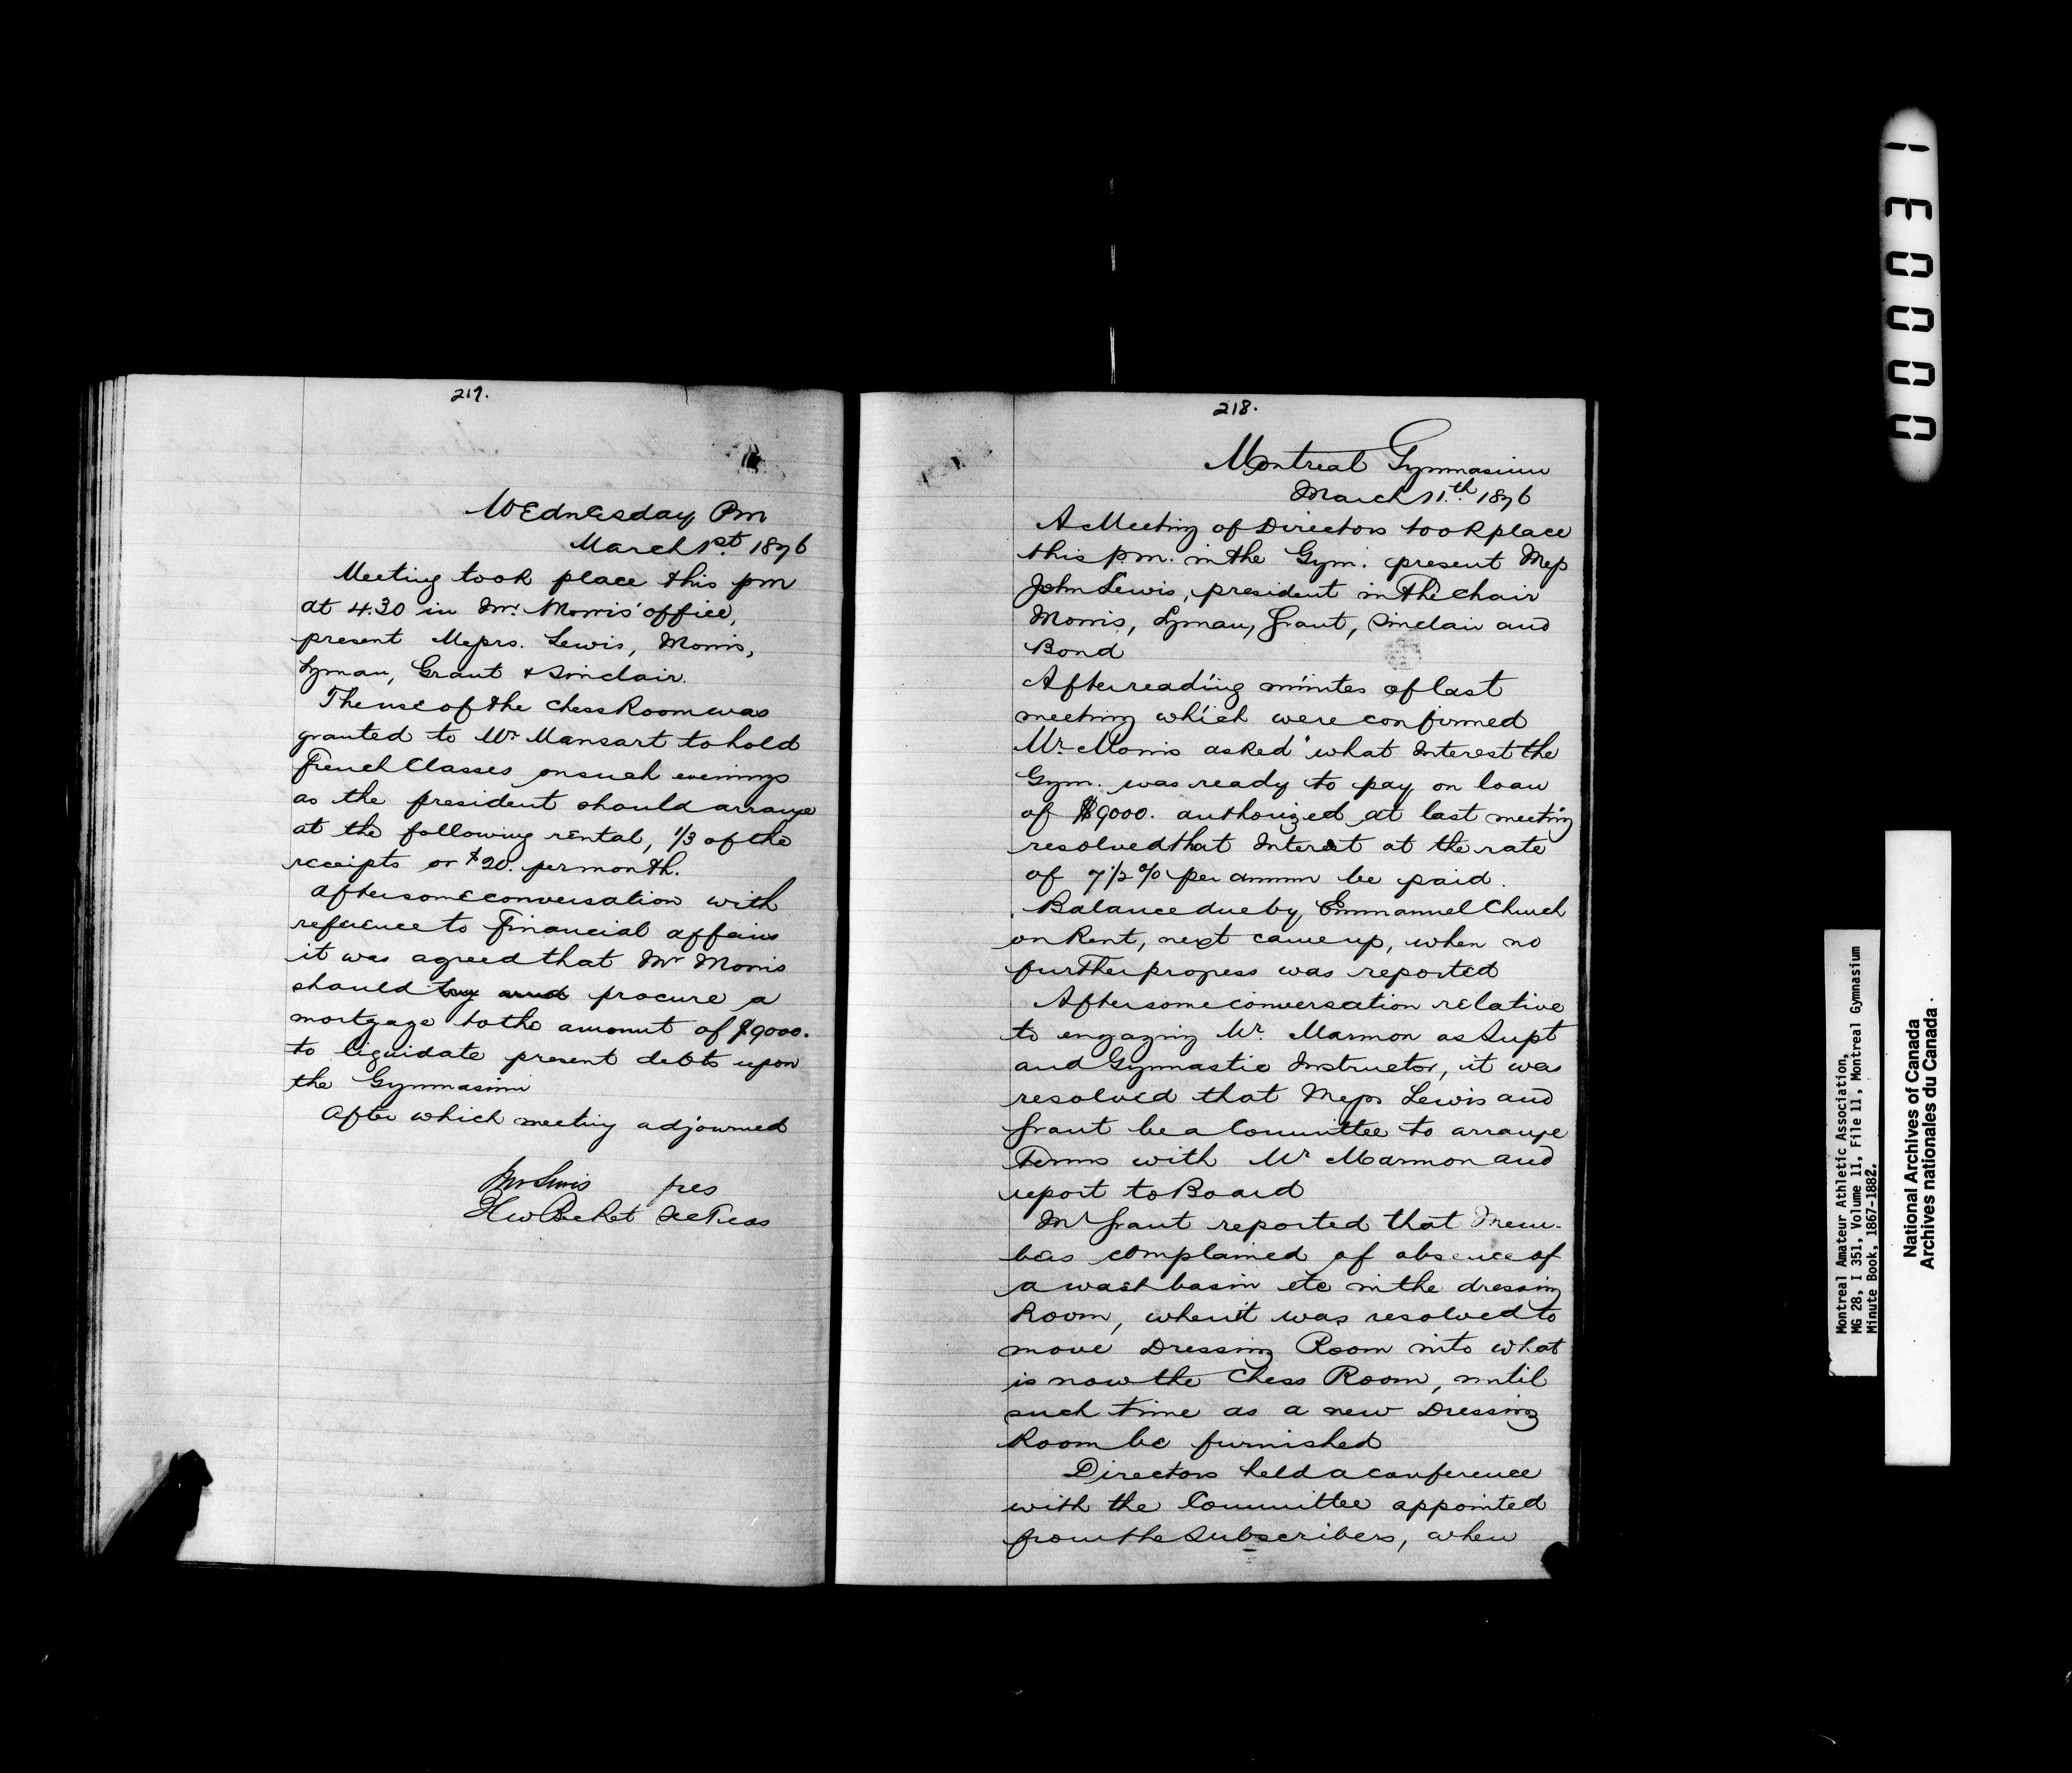 217.
Wednesday Pm
March 1st. 1876
Meeting took place this pm
at 4.30 in Mr. Morris' office,
present Messrs. Lewis, Morris,
Lyman, Grant & Sinclair.
The use of the Chess Room was
granted to Mr. Mansart to hold
French Classes on such evenings
as the president should arrange
at the following rental, 1/3 of the
receipts or $20. per month.
After some conversation with
reference to Financial affairs
it was agreed that Mr Morris
should try and procure a
mortgage to the amount of $9000.
to liquidate present debts upon
the Gymnasium
After which meeting adjourned
Jno Lewis pres
HW Becket Sec Treas
218.
Montreal Gymnasium
March 11.th 1876
A Meeting of Directors took place
this pm. in the Gym. present Mess
John Lewis, president in the chair
Morris, Lyman, Grant, Sinclair and
Bond
After reading minutes of last
meeting which were confirmed
Mr. Morris asked "what Interest the
Gym. was ready to pay on loan
of $9000. authorized at last meeting"
resolved that Interest at the rate
of 7 1/2 % per annum be paid.
Balance due by Emmanuel Church
on Rent, next came up, when no
further progress was reported
After some conversation relative
to engaging Mr. Marmon as Supt
and Gymnastic Instructor, it was
resolved that Messrs Lewis and
Grant be a Committee to arrange
Terms with Mr Marmon and
report to Board
Mr Grant reported that Mem-
bers complained of absence of
a wash basin etc in the dressing
Room, when it was resolved to
move Dressing Room into what
is now the Chess Room, until
such time as a new Dressing
Room be furnished
Directors held a conference
with the Committee appointed
from the Subscribers, when
Montreal Amateur Athletic Association,
MG 28, I 351, Volume 11, File 11, Montreal Gymnasium
Minute Book, 1867-1882.
National Archives of Canada
Archives nationales du Canada.
000031